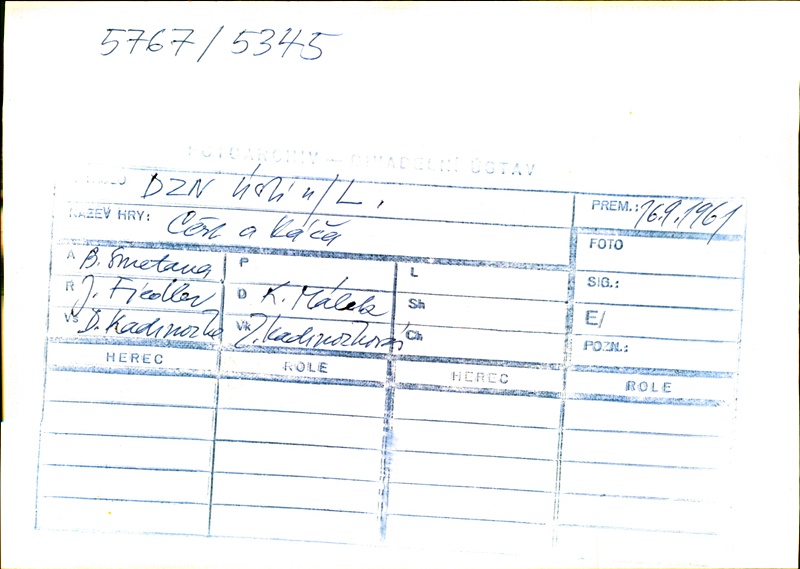 5767/5345
FOTOARCHIV – DIVADELNÍ ÚSTAV
DZN Ústí n/L. PREM.: 16.9.1961
NÁZEV HRY: Čert a Káča FOTO
A B. Smetana P L SIG.:
R J. Fiedler D K. Málek Sh E/
Vs D. Kadrnožka Vk Z. Kadrnožková Ch POZN.:
HEREC ROLE HEREC ROLE